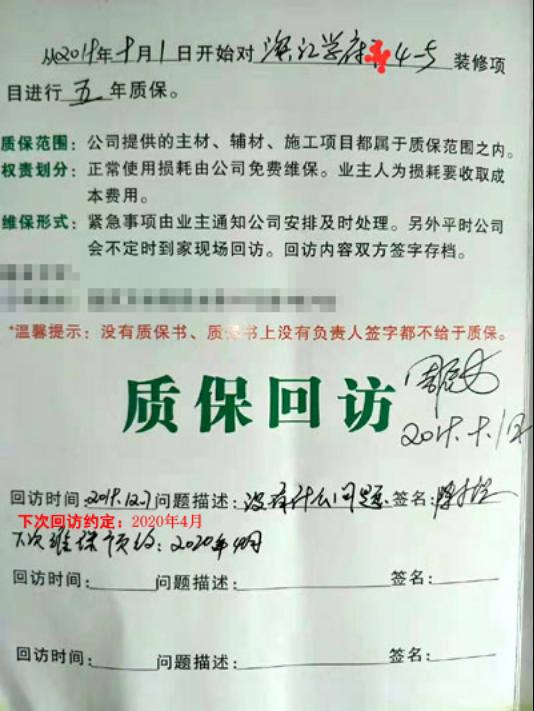 从2019年十月1日开始对滨江学府4-5装修项
目进行五年质保。
质保范围：公司提供的主材、辅材、施工项目都属于质保范围之内。
权责划分：正常使用损耗由公司免费维保。业主人为损耗要收取成
本费用。
维保形式：紧急事项由业主通知公司安排及时处理。另外平时公司
会不定时到家现场回访。回访内容双方签字存档。
*温馨提示：没有质保书、质保书上没有负责人签字都不给于质保。
质保回访
2019.十.1日
回访时间:2019.12.7问题描述:没有什么问题 签名:
下次回访约定：2020年4月
下次维保预约：2020年4月
回访时间:______问题描述:______签名:______
回访时间:______问题描述:______签名:______